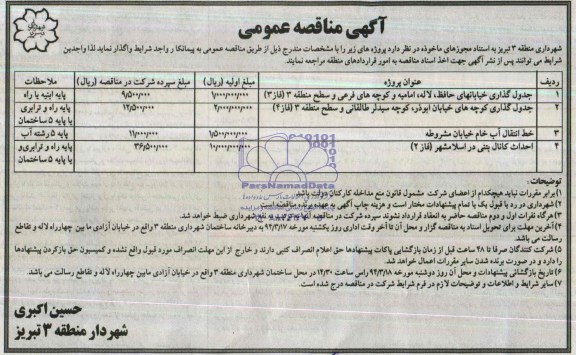 آگهی مناقصه عمومی
شهرداری تبریز
شهرداری منطقه ۳ تبریز به استناد مجوزهای ماخوذه در نظر دارد پروژه های زیر را با مشخصات مندرج ذیل از طریق مناقصه عمومی به پیمانکار واجد شرایط واگذار نماید لذا واجدین
شرایط می توانند پس از نشر آگهی جهت اخذ اسناد مناقصه به امور قراردادهای منطقه مراجعه نمایند.
ردیف عنوان پروژه مبلغ اولیه (ریال) مبلغ سپرده شرکت در مناقصه (ریال) ملاحظات
۱ جدول گذاری خیابانهای حافظ، لاله، امامیه و کوچه های فرعی و سطح منطقه ۳ (فاز۳) پایه ابنیه یا راه
۲ جدول گذاری کوچه های خیابان ابوذر، کوچه سیدلر طالقانی و سطح منطقه ۳ (فاز۴) پایه راه و ترابری
یا پایه ۵ ساختمان
۳ خط انتقال آب خام خیابان مشروطه پایه ۵ رشته آب
۴ احداث کانال بتنی در اسلامشهر (فاز ۲) پایه راه و ترابری و
یا پایه ۵ ساختمان
ParsNamadData
توضیحات:
۱) برابر مقررات نباید هیچکدام از اعضای شرکت مشمول قانون منع مداخله کارکنان دولت باشد.
۲) شهرداری در رد یا قبول یک یا تمام پیشنهادات مختار است و هزینه چاپ آگهی به عهده برنده مناقصه است.
۳) هرگاه نفرات اول و دوم مناقصه حاضر به انعقاد قرارداد نشوند سپرده شرکت در مناقصه آنها به ترتیب به نفع شهرداری ضبط خواهد شد.
۴) آخرین مهلت برای تحویل اسناد به مناقصه گزار و محل آن تا آخر وقت اداری روز یکشنبه مورخه ۹۲/۳/۱۷ به دبیرخانه ساختمان شهرداری منطقه ۳ واقع در خیابان آزادی ما بین چهارراه لاله و تقاطع
رسالت می باشد.
۵) شرکت کنندگان صرفا تا ۴۸ ساعت قبل از زمان بازگشایی پاکات پیشنهادها حق اعلام انصراف کتبی دارند و خارج از این مهلت انصراف مورد قبول واقع نشده و کمیسیون حق بازکردن پیشنهادها
را دارد و در صورت برنده شدن سایر مقررات اعمال خواهد شد.
۶) تاریخ بازگشائی پیشنهادات و محل آن روز دوشنبه مورخه ۹۲/۳/۱۸ راس ساعت ۱۴/۳۰ در محل ساختمان شهرداری منطقه ۳ واقع در خیابان آزادی مابین چهارراه لاله و تقاطع رسالت می باشد.
۷) سایر شرایط و اطلاعات و توضیحات لازم در فرم شرایط شرکت در مناقصه درج شده است.
حسین اکبری
شهردار منطقه ۳ تبریز